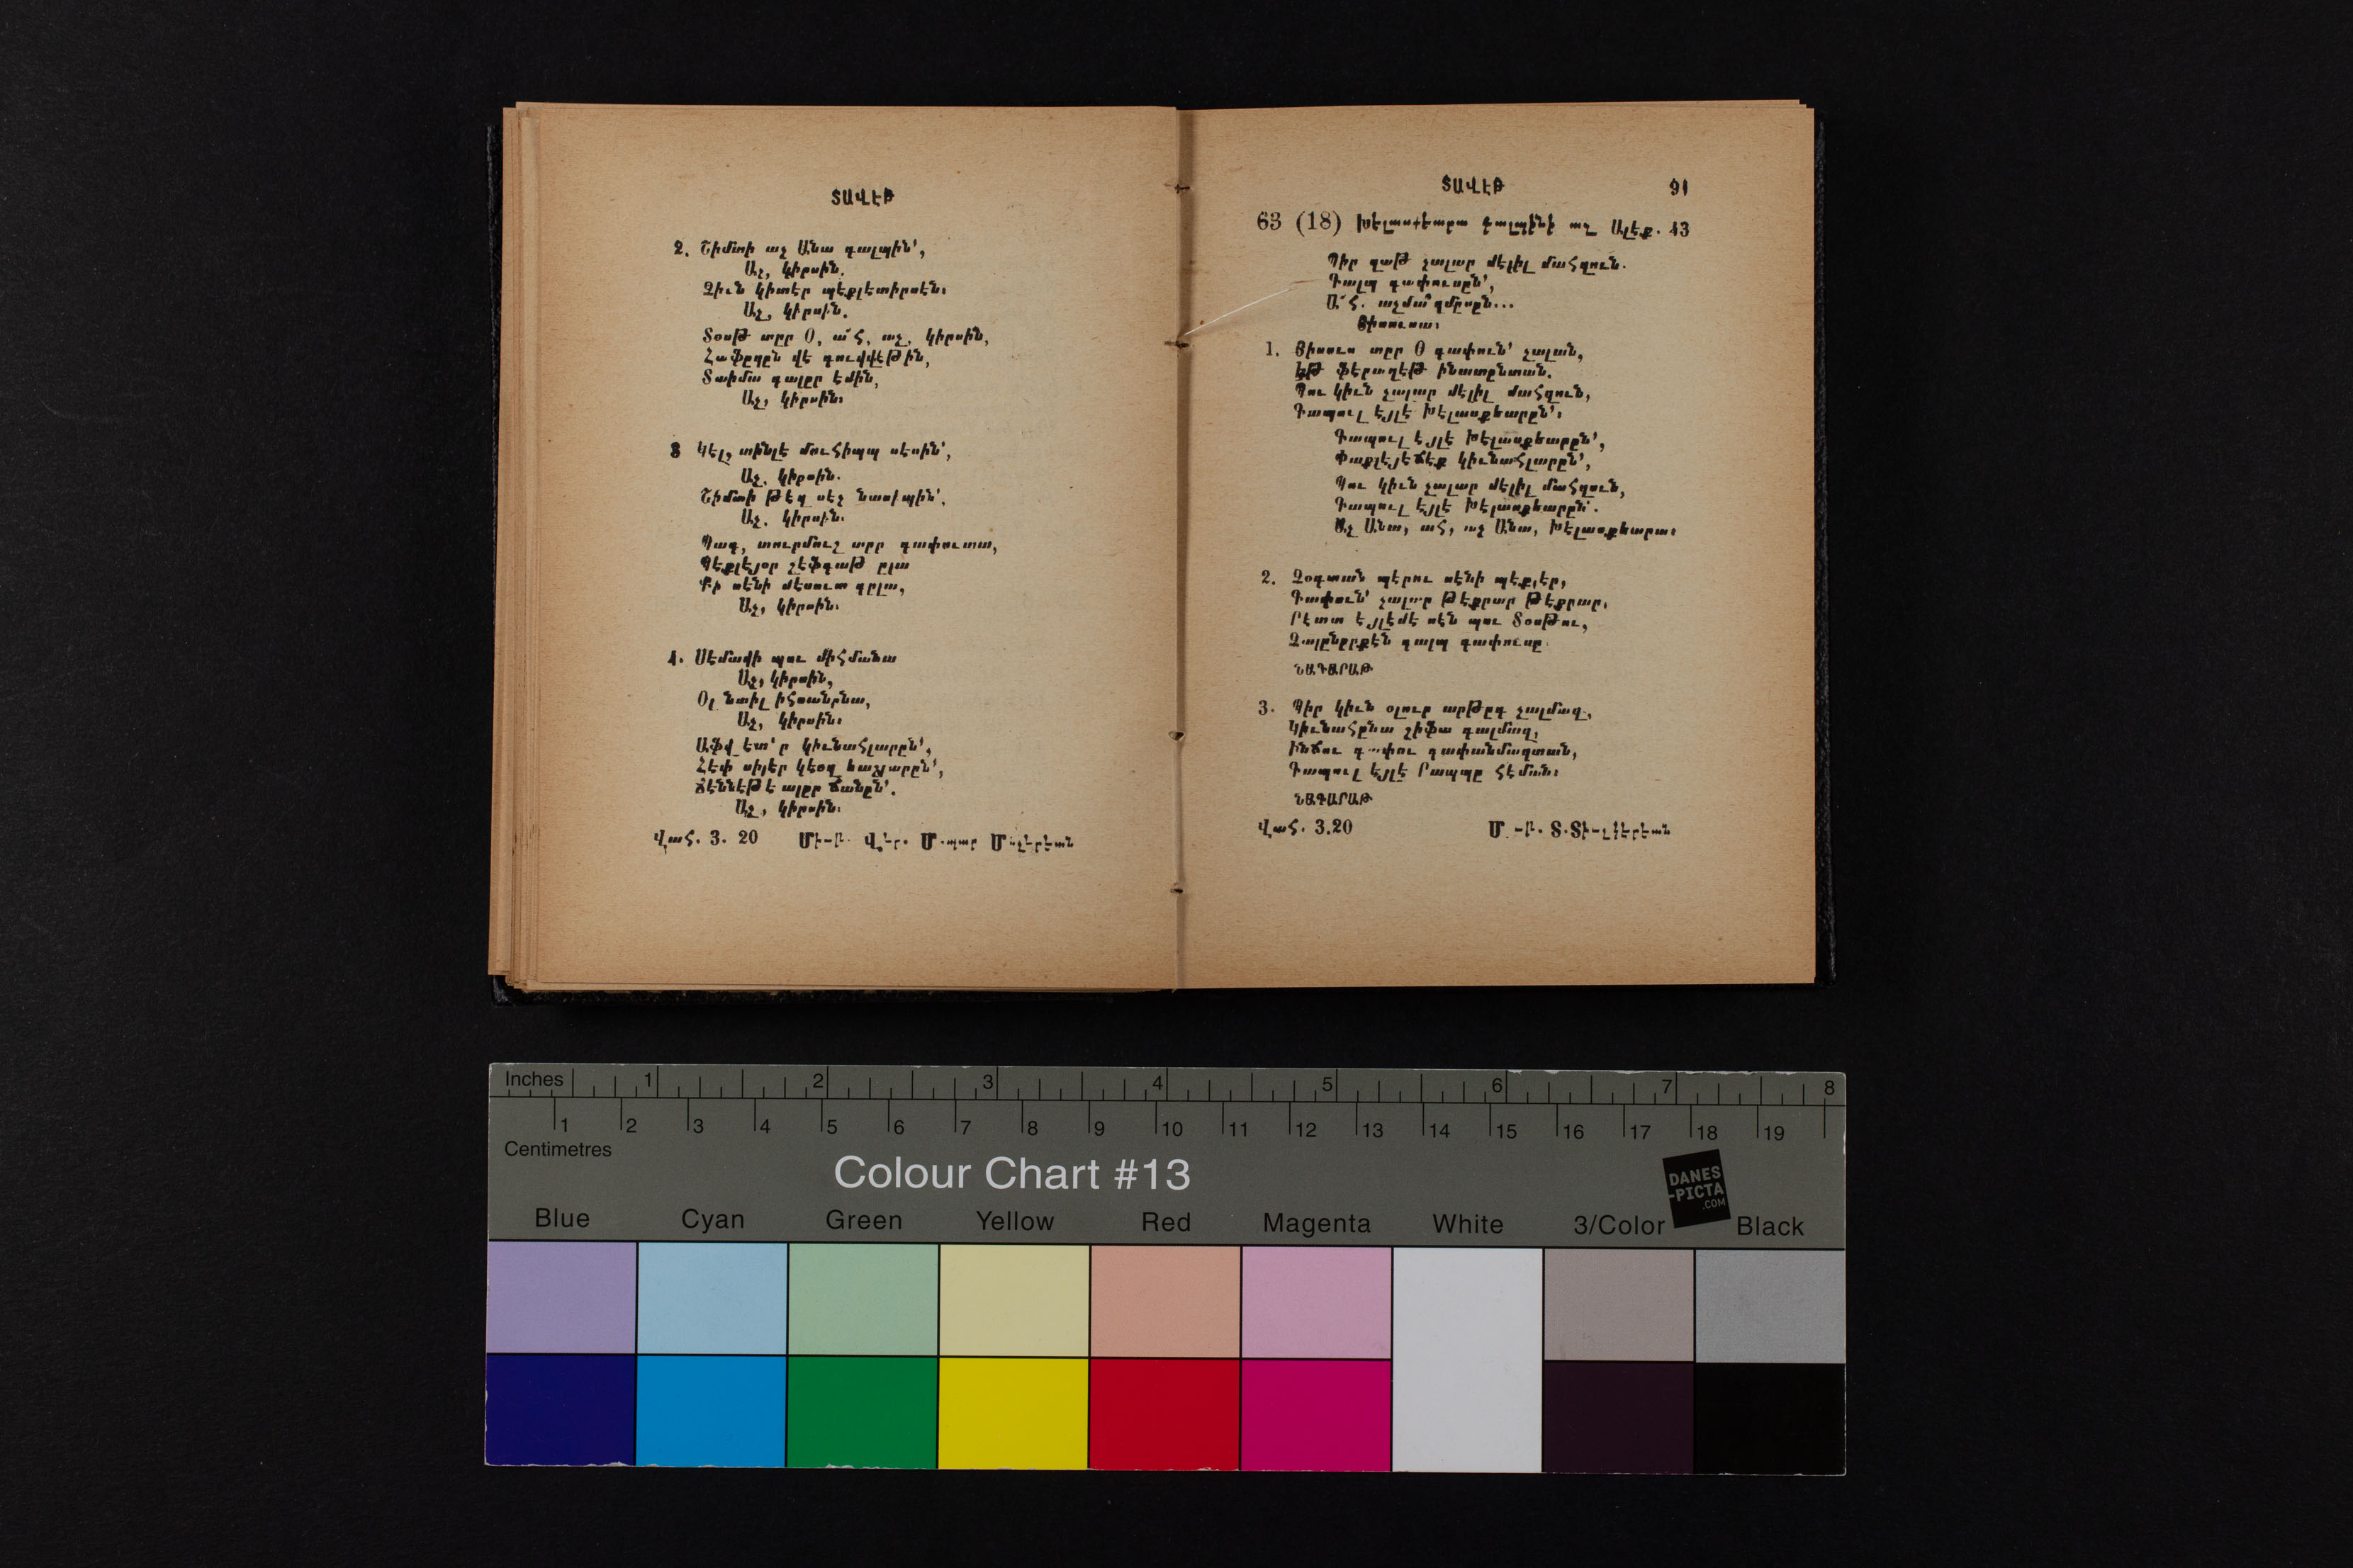 ՏԱՎԷԹ
2. Շիմտի աչ Անա գալպին՝,
Աչ, կիրսին.
Զիւն կիտէր պէքլետիրսէն։
Աչ, կիրսին.
Տօսթ տըր Օ, ա՜Հ, աչ, կիրսին,
Հաֆըզըն վե գուվվէթին,
Տաիմա գալըր էմին,
Աչ, կիրսին։
3 Կէլ, տինլէ մուՀիպպ սէսին՝,
Աչ, կիրսին.
Շիմտի թէզ սէչ նասիպին՝.
Աչ, կիրսին.
Պագ, տուրմուշ տըր գափուտա,
Պէքլէյօր շէֆգաթ ըլա
Քի սէնի մէսուտ գըլա,
Աչ, կիրսին։
4. Սէմավի պու միՀմանա
Աչ, կիրսին,
Օլ նաիլ իՀսանընա,
Աչ, կիրսին։
Աֆվ ետ՛ր կիւնաՀլարըն՝,
Հեփ սիլեր կէօզ եաշլարըն՝,
Ճէննէթէ ալըր ճանըն՝.
Աչ, կիրսին։
ՎաՀ. 3. 20
ՏԱՎԷԹ
91
63 (18) Խէլասքեարա գալպինի աչ Ալէք. 43
Պիր զաթ չալար մէլիլ մաՀզուն.
Գալպ գափուսըն՝,
Ա՜Հ. աչմա՞զմըսըն...
Յիսուսա։
1. Յիսուս տըր Օ գափուն՝ չալան,
Էթ ֆէրաղէթ ինատընտան.
Պու կիւն չալար մէլիլ մաՀզուն,
Գապուլ էյլէ Խէլասքեարըն՝։
Գապուլ էյլէ Խէլասքեարըն՝,
Փաքլէյեճէք կիւնաՀլարըն՝,
Պու կիւն չալար մէլիլ մաՀզուն,
Գապուլ էյլէ Խէլասքեարըն՝.
Աչ Անա, աՀ, աչ Անա, Խէլասքեարա։
2. Չօգտան պէրու սէնի պէքլէր,
Գափուն՝ չալար թէքրար թէքրար.
Րէտտ էյլէմէ սէն պու Տօսթու,
Չալընըրքէն գալպ գափուսը.
ՆԱԳԱՐԱԹ
3. Պիր կիւն օլուր արթըգ չալմազ,
ԿիւնաՀընա շիֆա գալմազ,
Ինճու գափու գափանմազտան,
Գապուլ էյլէ Րապպը Հէման։
ՆԱԳԱՐԱԹ
ՎաՀ. 3.20
Inches 1 2 3 4 5 6 7 8
1 2 3 4 5 6 7 8 9 10 11 12 13 14 15 16 17 18 19
Centimetres
Colour Chart #13
DANES
-PICTA
.COM
Blue Cyan Green Yellow Red Magenta White 3/Color Black